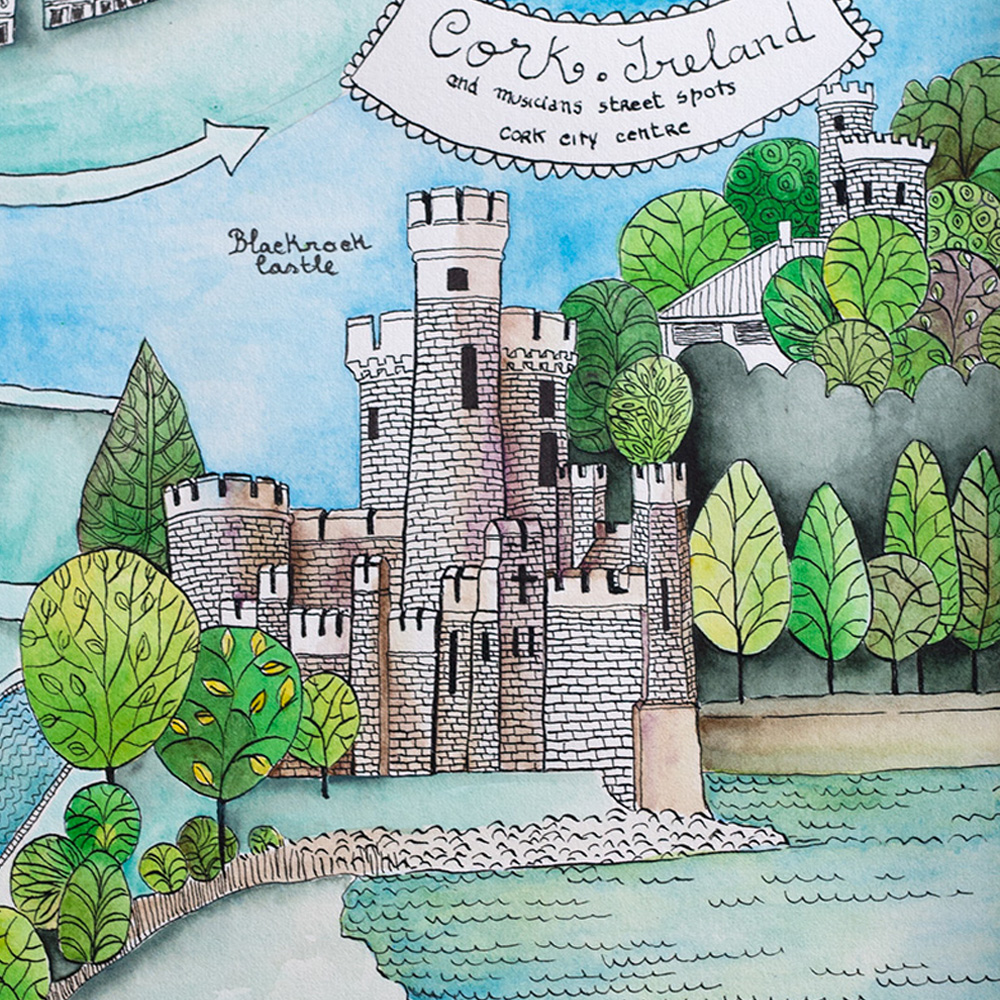 Cork. Ireland
and musicians street spots
CORK CITY CENTRE
Blackrock
Castle